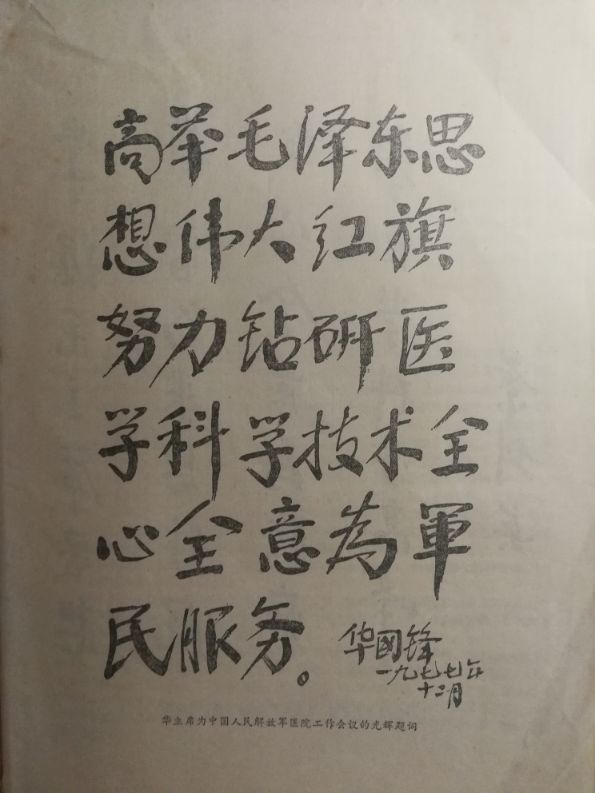 高举毛泽东思
想伟大红旗
努力钻研医
学科学技术全
心全意为軍
民服务。
华國锋
一九七七年
十二月
华主席为中国人民解放军医院工作会议的光辉题词